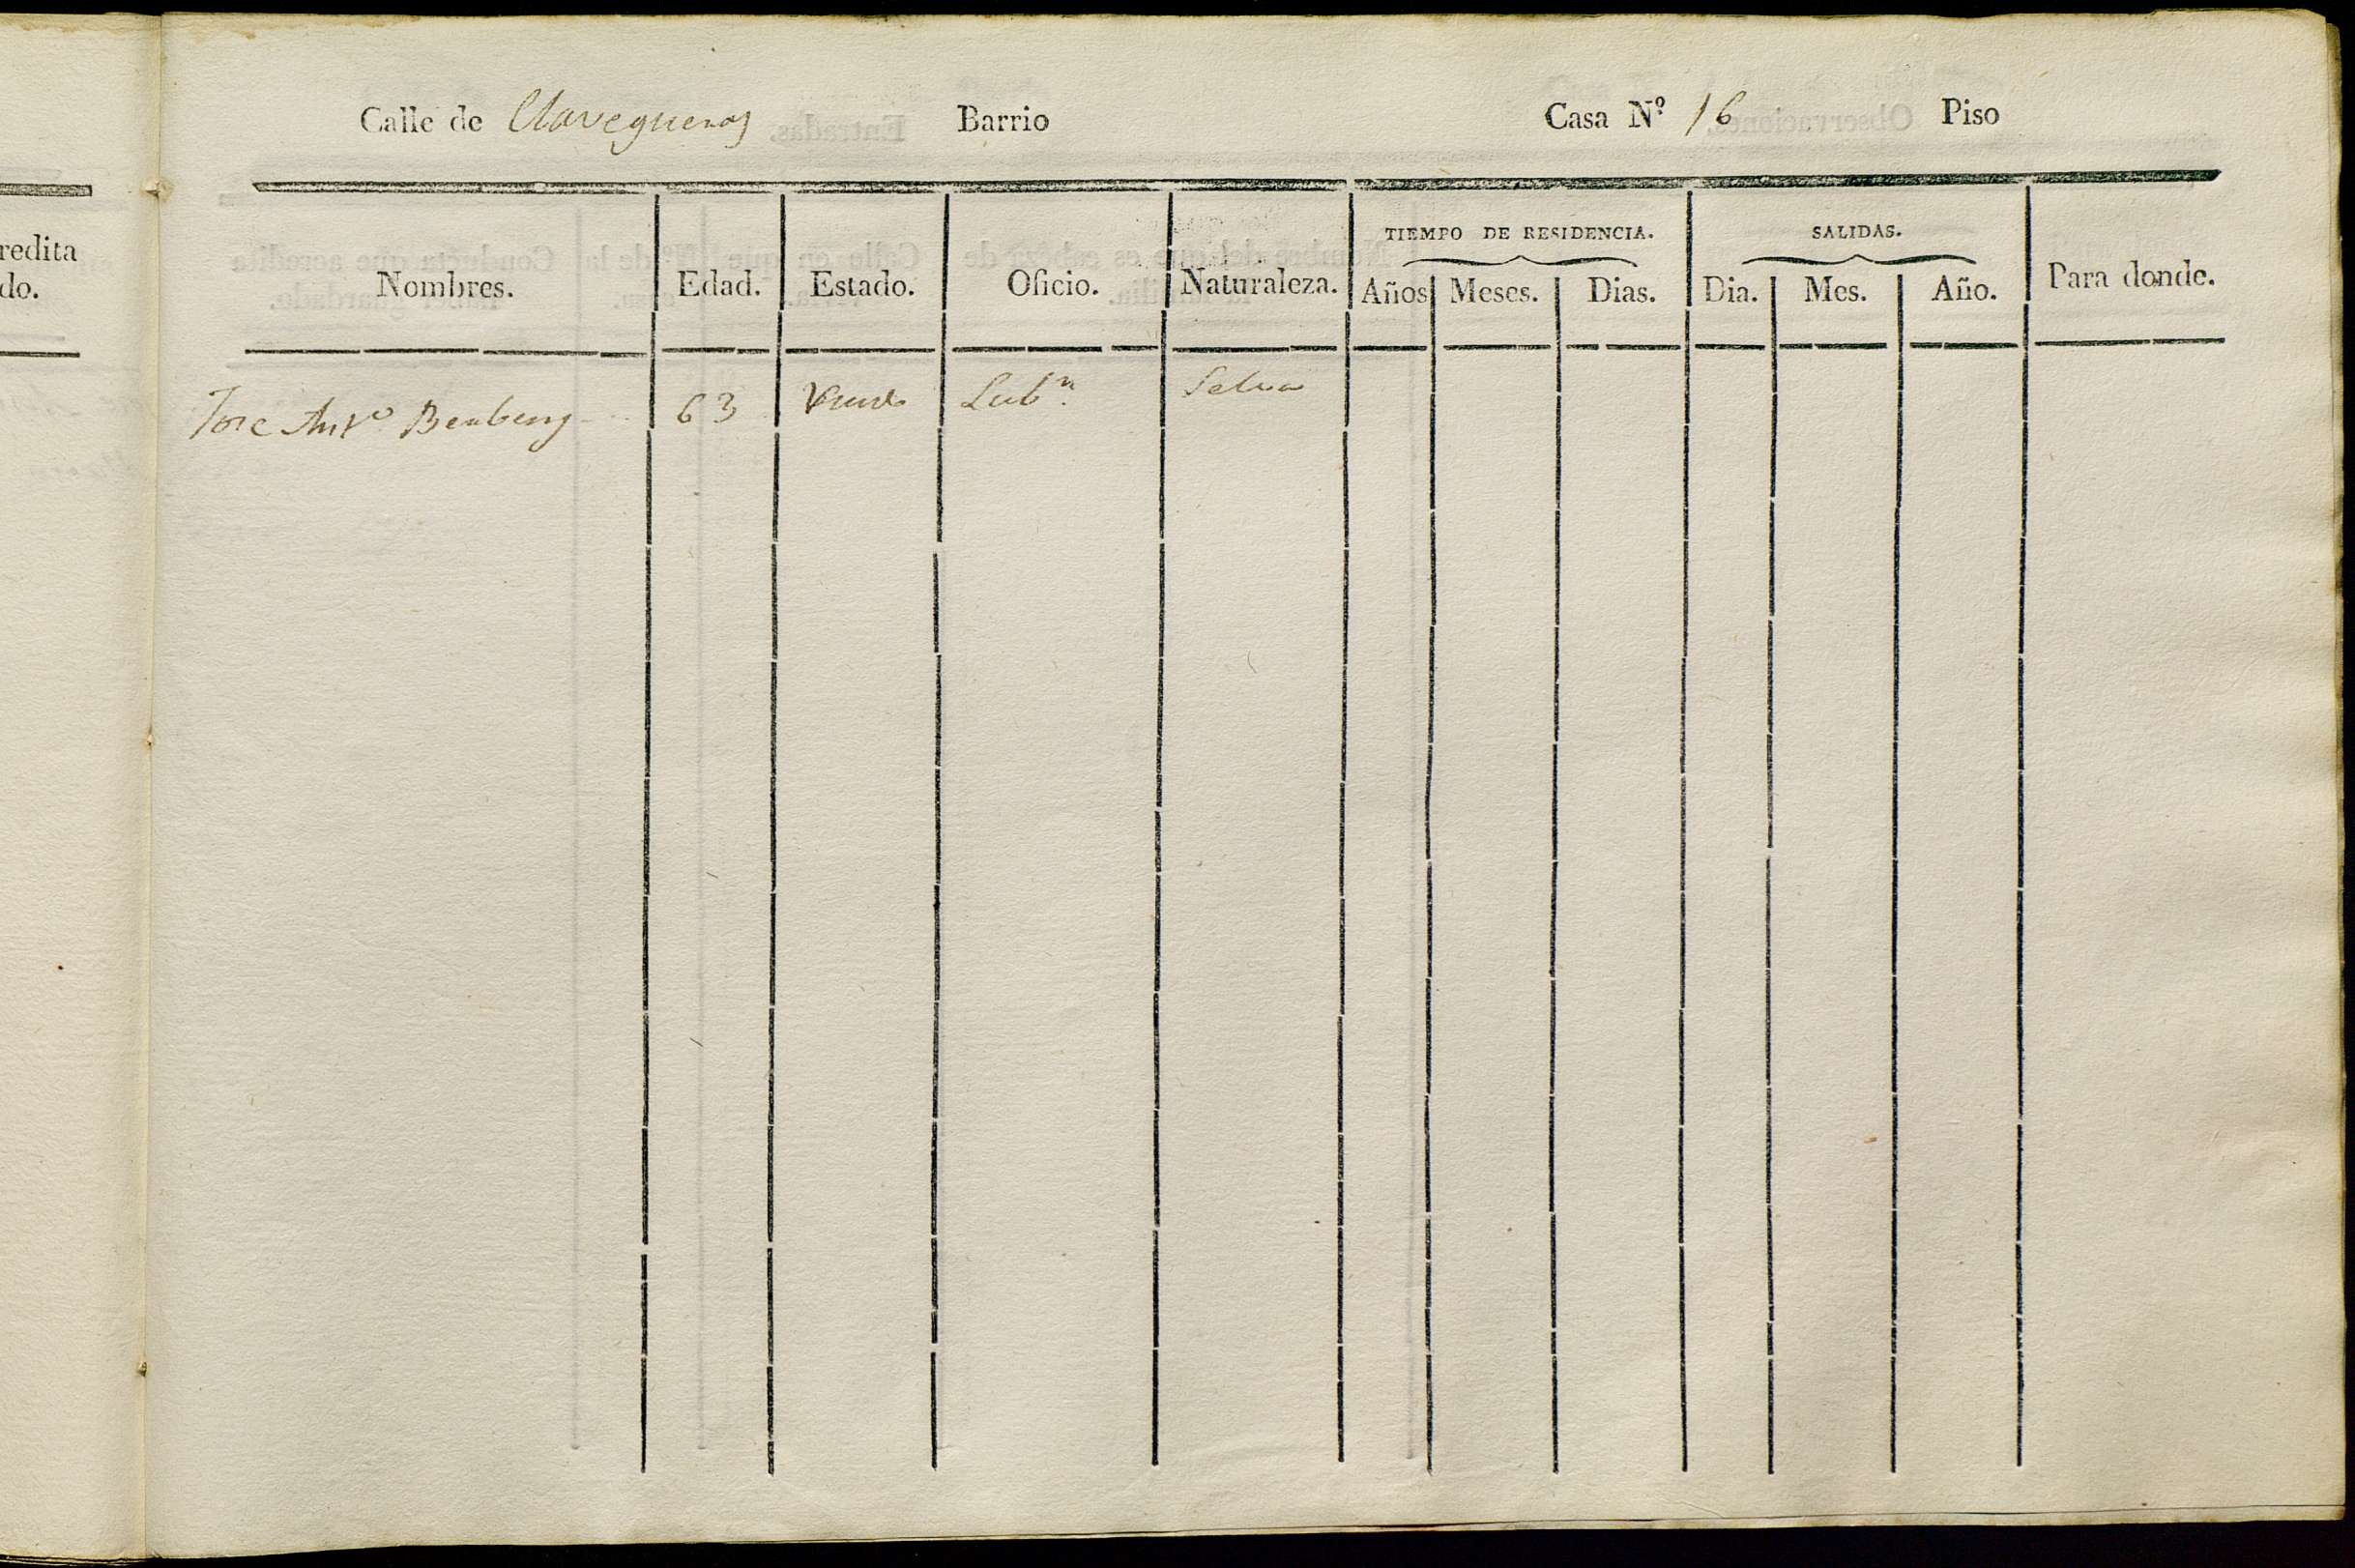 redita
do.
Calle de Clavegueras Barrio Casa Nº 16 Piso
Nombres. Edad. Estado. Oficio. Naturaleza. TIEMPO DE RESIDENCIA. Años Meses. Dias. SALIDAS. Dia. Mes. Año. Para donde.
Jose Antº 63 Labn Selva